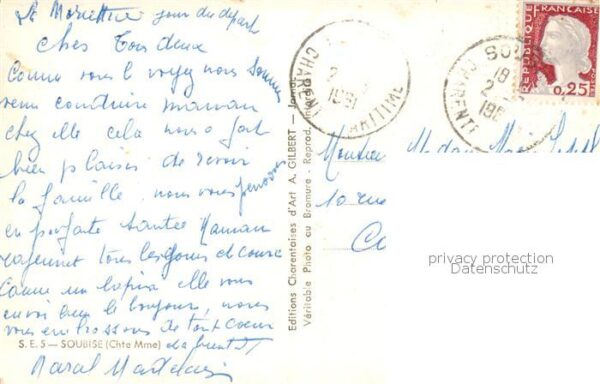 jour du départ
Chers Tous deux
Comme vous le voyez nous sommes
venu conduire maman
chez elle cela nous a fait
bien plaisir de revoir
la famille, nous vous pensons
en parfaite santée Maman
rajeunet tous les jours et coure
Comme un lapin elle vous
envoi bien le bonjour, nous
vous embrassons de tout coeur
S. E. S — SOUBISE (Chte Mme) a bientôt
Editions Charentaises d'Art A. GILBERT —
Véritable Photo au Bromure - Reprod.
CHARENTE MARITIME
1961
SOUBISE
18
CHARENTE
196
REPUBLIQUE FRANÇAISE
0,25
Monsieur Madame
10 rue
privacy protection
Datenschutz